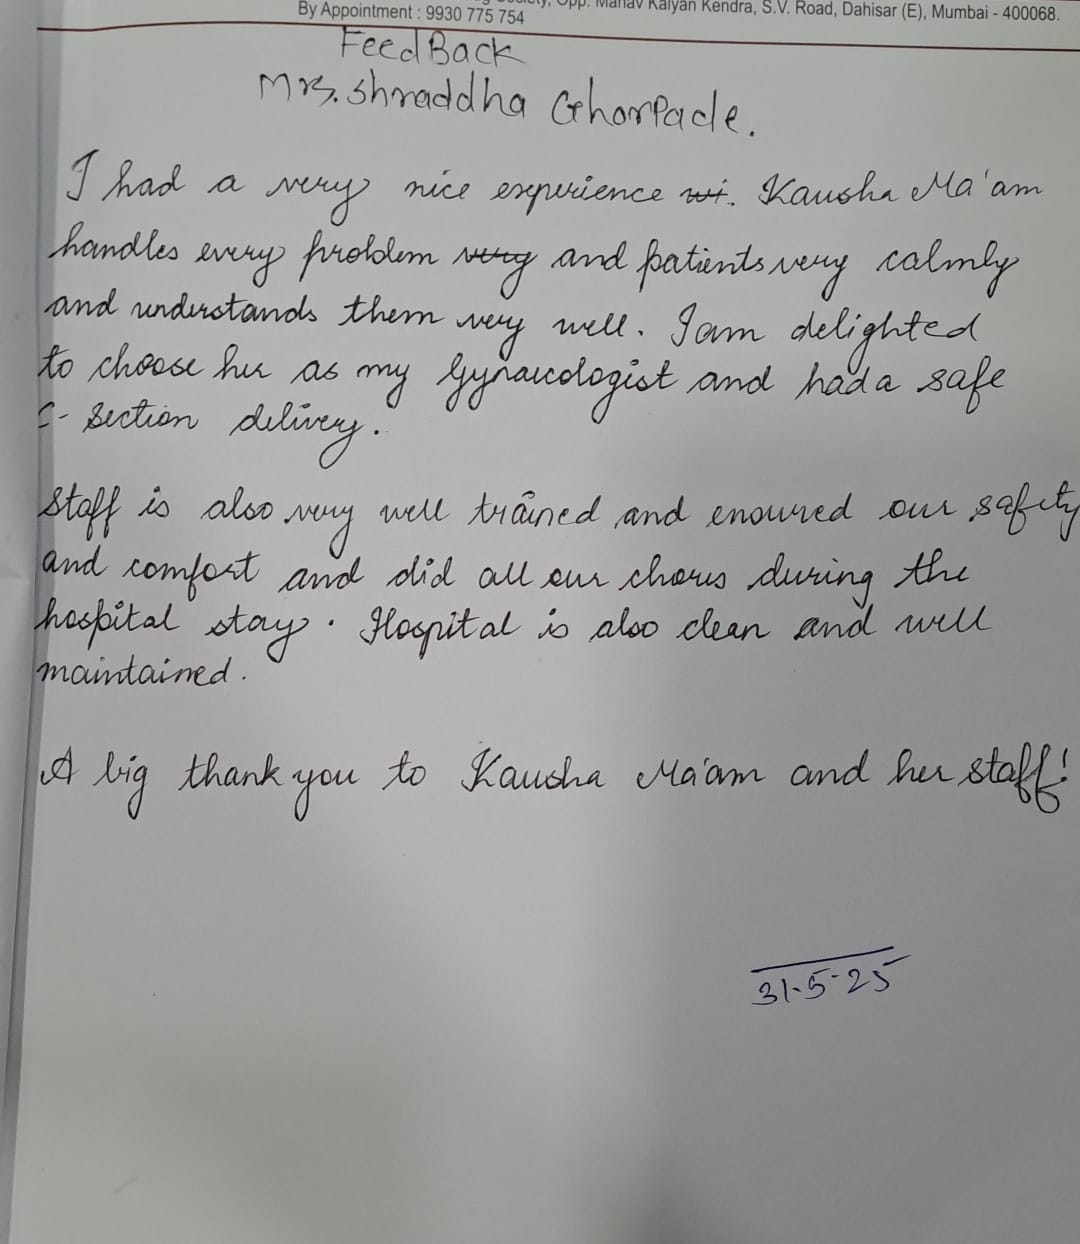 Society, Opp. Manav Kalyan Kendra, S.V. Road, Dahisar (E), Mumbai - 400068.
By Appointment : 9930 775 754
FeedBack
Mrs. Shraddha Ghorpade.
I had a very nice experience wi. Kausha Ma'am
handles every problem very and patients very calmly
and understands them very well. I am delighted
to choose her as my Gynaecologist and had a safe
C-Section delivery.
Staff is also very well trained and ensured our safety
and comfort and did all our chores during the
hospital stay. Hospital is also clean and well
maintained.
A big thank you to Kausha Ma'am and her staff!
31-5-25